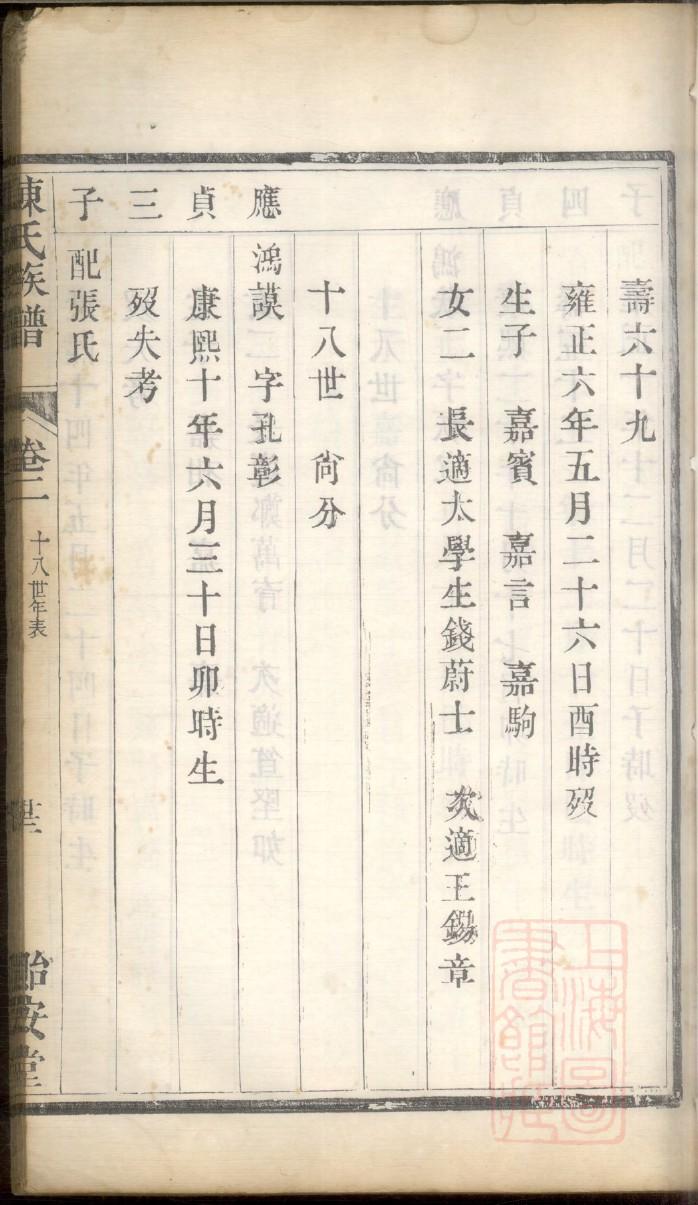 壽六十九
雍正六年五月二十六日酉時歿
生子　嘉賓　嘉言　嘉駒
女二　長適太學生錢蔚士　次適王錫章
十八世　尙分
應　鴻謨　字孔彰
貞　康熙十年六月三十日卯時生
三　歿失考
子　配張氏
陳氏族譜　卷二　十八世年表　貽安堂
上海圖書館藏